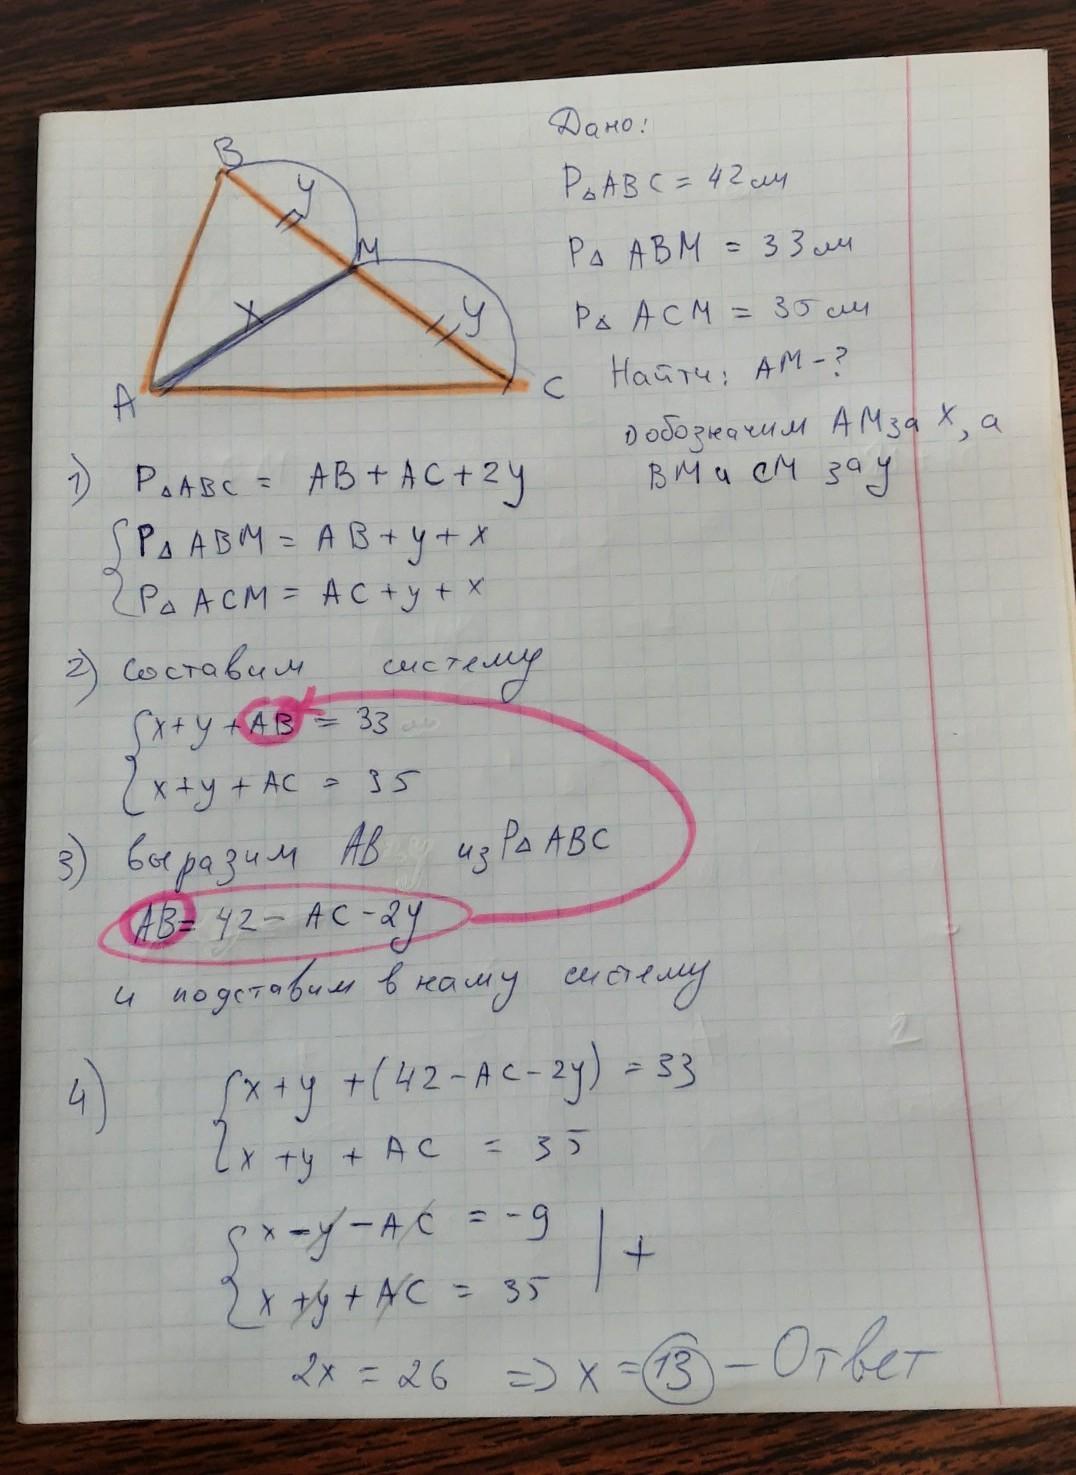 B
y
M
x
y
A
C
Дано:
P△ABC = 42см
P△ ABM = 33см
P△ ACM = 35см
Найти: AM-?
обозначим AM за x, а
BM и CM за y
1) P△ABC = AB + AC + 2y
P△ ABM = AB + y + x
P△ ACM = AC + y + x
2) составим систему
x + y + AB = 33 см
x + y + AC = 35
3) выразим AB из P△ ABC
AB = 42 - AC - 2y
и подставим в нашу систему
4)
x + y + (42 - AC - 2y) = 33
x + y + AC = 35
x - y - AC = -9
x + y + AC = 35
+
2x = 26 => x = 13 - Ответ
2